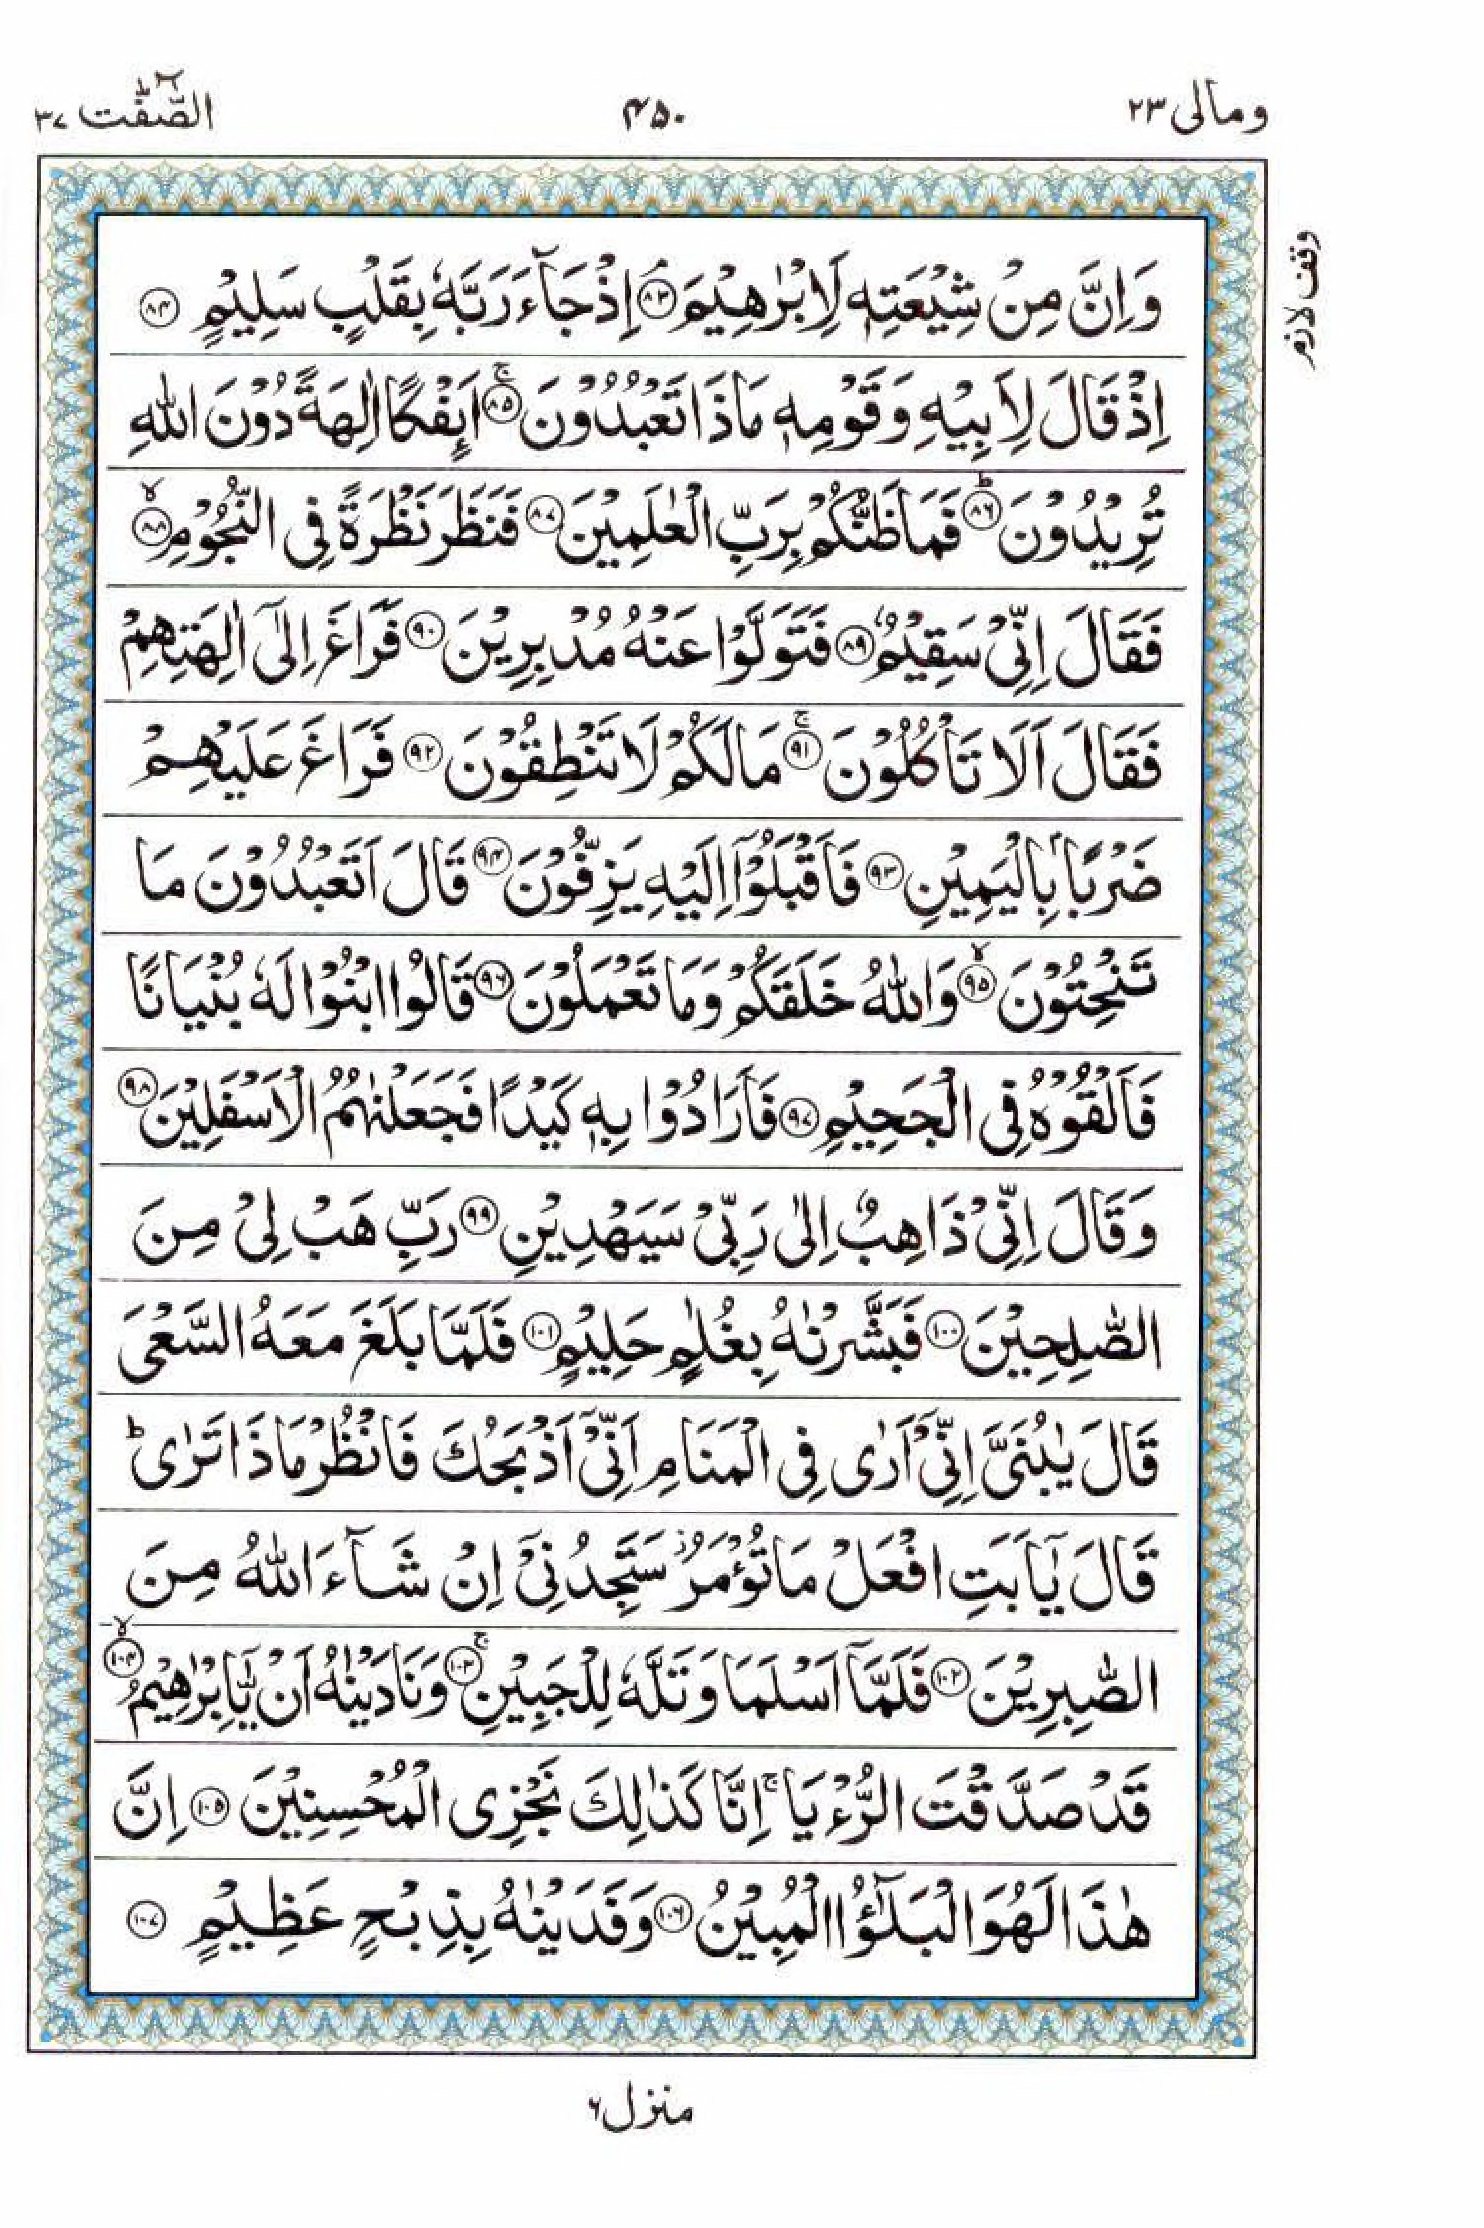 ومالی ۲۳
۴۵۰
الصّٰٓفّٰت ۳۷
وقف لازم
وَاِنَّ مِنْ شِيْعَتِهٖ لَاِبْرٰهِيْمَۘ ۝۸۳ اِذْ جَآءَ رَبَّهٗ بِقَلْبٍ سَلِيْمٍ ۝۸۴
اِذْ قَالَ لِاَبِيْهِ وَقَوْمِهٖ مَاذَا تَعْبُدُوْنَۚ ۝۸۵ اَئِفْكًا اٰلِهَةً دُوْنَ اللّٰهِ
تُرِيْدُوْنَؕ ۝۸۶ فَمَا ظَنُّكُمْ بِرَبِّ الْعٰلَمِيْنَ ۝۸۷ فَنَظَرَ نَظْرَةً فِى النُّجُوْمِۙ ۝۸۸
فَقَالَ اِنِّىْ سَقِيْمٌ ۝۸۹ فَتَوَلَّوْا عَنْهُ مُدْبِرِيْنَ ۝۹۰ فَرَاغَ اِلٰٓى اٰلِهَتِهِمْ
فَقَالَ اَلَا تَاْكُلُوْنَۚ ۝۹۱ مَا لَكُمْ لَا تَنْطِقُوْنَ ۝۹۲ فَرَاغَ عَلَيْهِمْ
ضَرْبًۢا بِالْيَمِيْنِ ۝۹۳ فَاَقْبَلُوْۤا اِلَيْهِ يَزِفُّوْنَ ۝۹۴ قَالَ اَتَعْبُدُوْنَ مَا
تَنْحِتُوْنَۙ ۝۹۵ وَاللّٰهُ خَلَقَكُمْ وَمَا تَعْمَلُوْنَ ۝۹۶ قَالُوا ابْنُوْا لَهٗ بُنْيَانًا
فَاَلْقُوْهُ فِى الْجَحِيْمِ ۝۹۷ فَاَرَادُوْا بِهٖ كَيْدًا فَجَعَلْنٰهُمُ الْاَسْفَلِيْنَ ۝۹۸
وَقَالَ اِنِّىْ ذَاهِبٌ اِلٰى رَبِّىْ سَيَهْدِيْنِ ۝۹۹ رَبِّ هَبْ لِىْ مِنَ
الصّٰلِحِيْنَ ۝۱۰۰ فَبَشَّرْنٰهُ بِغُلٰمٍ حَلِيْمٍ ۝۱۰۱ فَلَمَّا بَلَغَ مَعَهُ السَّعْىَ
قَالَ يٰبُنَىَّ اِنِّىْۤ اَرٰى فِى الْمَنَامِ اَنِّىْۤ اَذْبَحُكَ فَانْظُرْ مَاذَا تَرٰىؕ
قَالَ يٰۤاَبَتِ افْعَلْ مَا تُؤْمَرُ سَتَجِدُنِىْۤ اِنْ شَآءَ اللّٰهُ مِنَ
الصّٰبِرِيْنَ ۝۱۰۲ فَلَمَّاۤ اَسْلَمَا وَتَلَّهٗ لِلْجَبِيْنِۚ ۝۱۰۳ وَنَادَيْنٰهُ اَنْ يّٰۤاِبْرٰهِيْمُۙ ۝۱۰۴
قَدْ صَدَّقْتَ الرُّءْيَاۚ اِنَّا كَذٰلِكَ نَجْزِى الْمُحْسِنِيْنَ ۝۱۰۵ اِنَّ
هٰذَا لَهُوَ الْبَلٰٓؤُا الْمُبِيْنُ ۝۱۰۶ وَفَدَيْنٰهُ بِذِبْحٍ عَظِيْمٍ ۝۱۰۷
منزل ۶